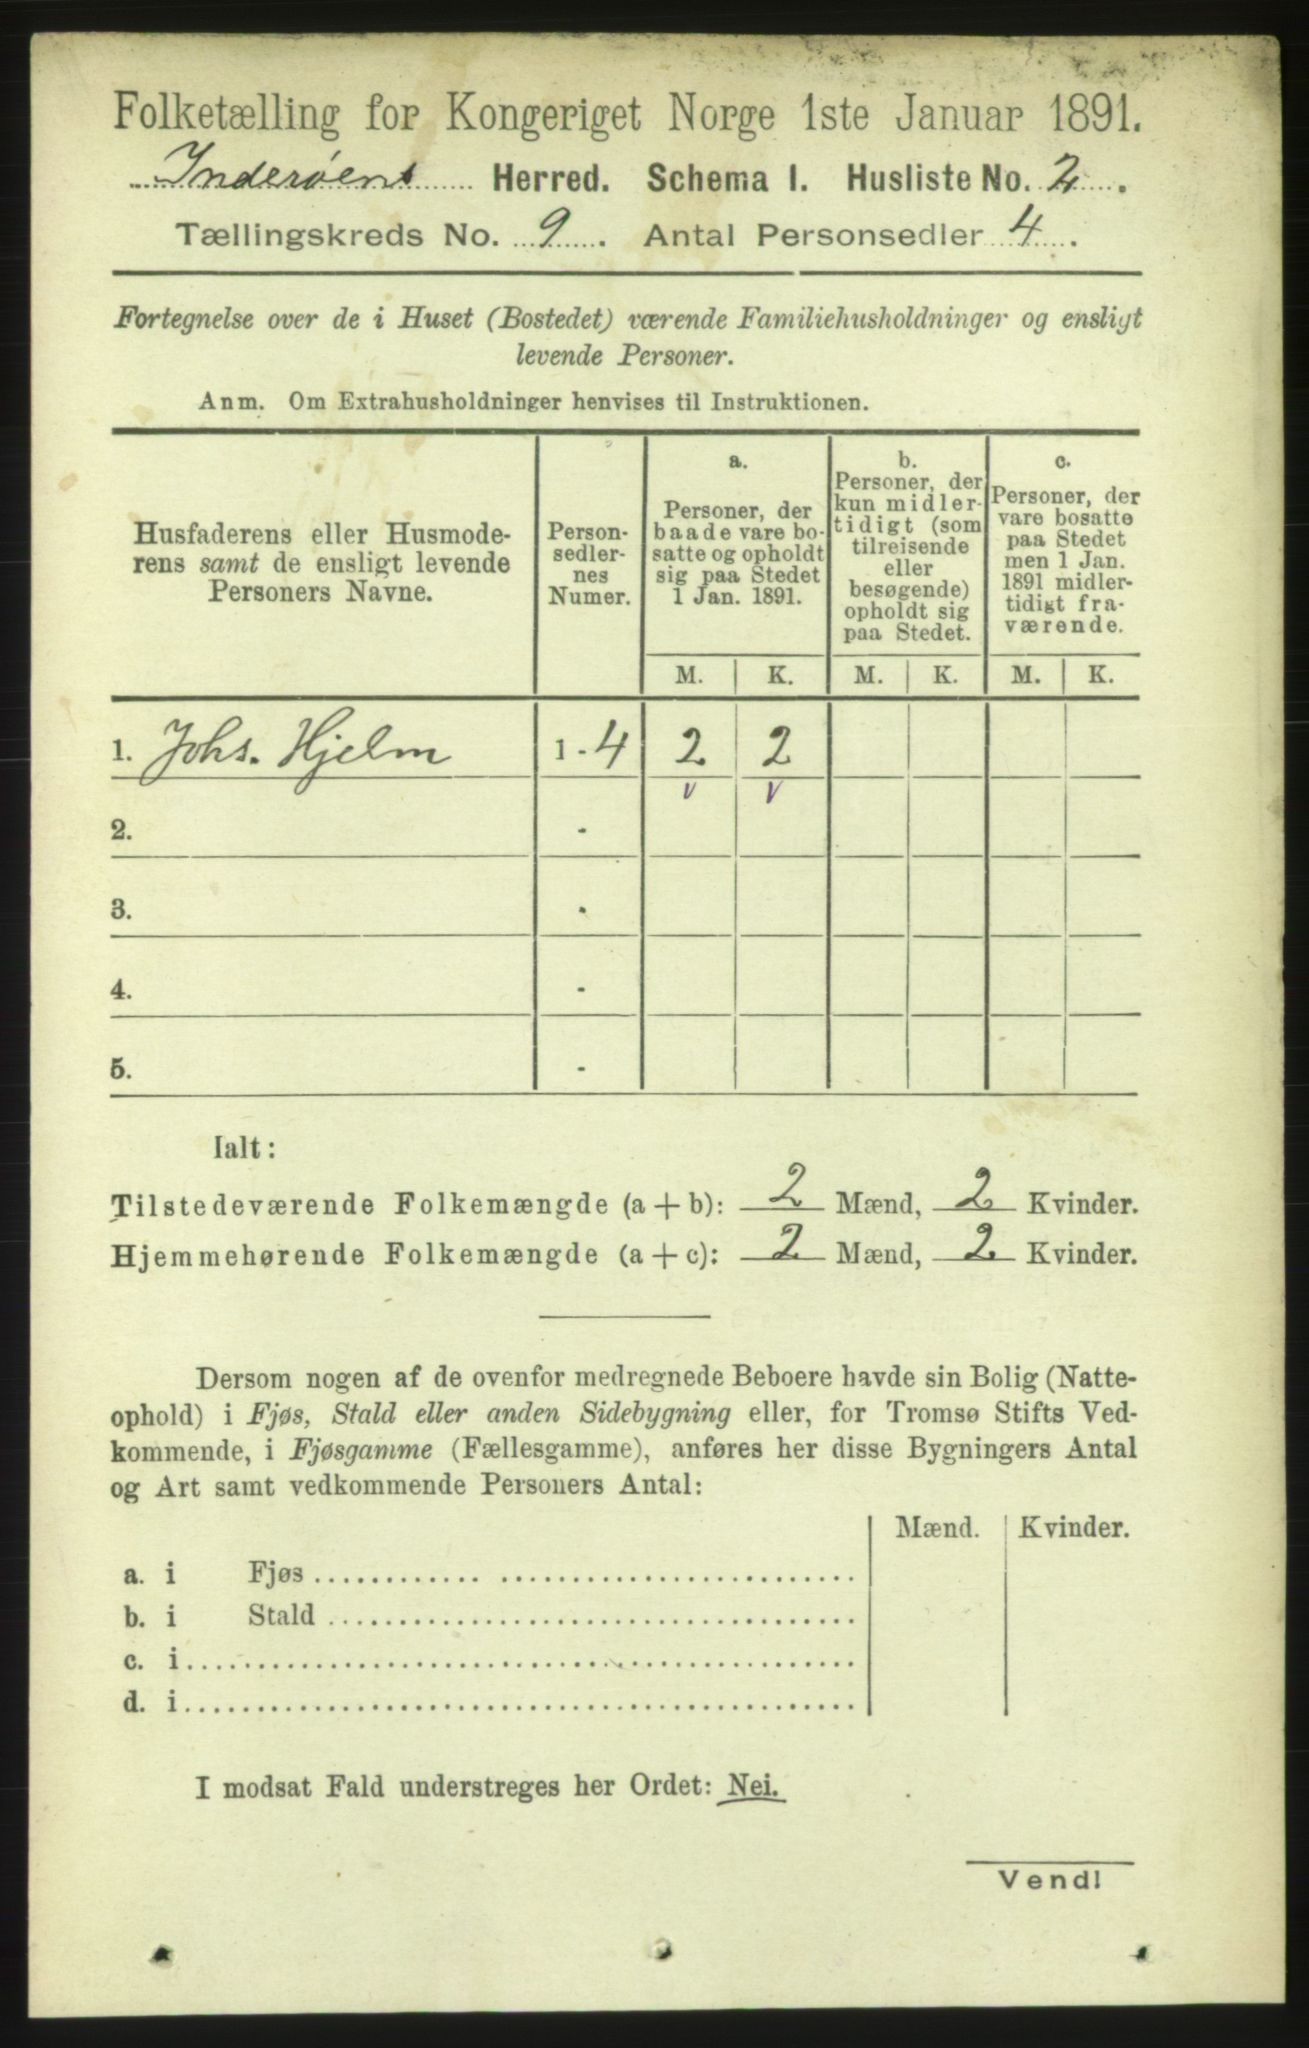 Folketælling for Kongeriget Norge 1ste Januar 1891.
Inderøens Herred. Schema I. Husliste No. 2.
Tællingskreds No. 9. Antal Personsedler 4.
Fortegnelse over de i Huset (Bostedet) værende Familiehusholdninger og ensligt
levende Personer.
Anm. Om Extrahusholdninger henvises til Instruktionen.
Husfaderens eller Husmode-
rens samt de ensligt levende
Personers Navne.
Person-
sedler-
nes
Numer.
a.
Personer, der
baade vare bo-
satte og opholdt
sig paa Stedet
1 Jan. 1891.
b.
Personer, der
kun midler-
tidigt (som
tilreisende
eller
besøgende)
opholdt sig
paa Stedet.
c.
Personer, der
vare bosatte
paa Stedet
men 1 Jan.
1891 midler-
tidigt fra-
værende.
M. K. M. K. M. K.
1. Johs. Hjelm 1 - 4 2 2
v v
2. -
3. -
4. -
5. -
Ialt:
Tilstedeværende Folkemængde (a + b): 2 Mænd, 2 Kvinder.
Hjemmehørende Folkemængde (a + c): 2 Mænd, 2 Kvinder.
Dersom nogen af de ovenfor medregnede Beboere havde sin Bolig (Natte-
ophold) i Fjøs, Stald eller anden Sidebygning eller, for Tromsø Stifts Ved-
kommende, i Fjøsgamme (Fællesgamme), anføres her disse Bygningers Antal
og Art samt vedkommende Personers Antal:
Mænd. Kvinder.
a. i Fjøs
b. i Stald
c. i
d. i
I modsat Fald understreges her Ordet: Nei.
Vend!